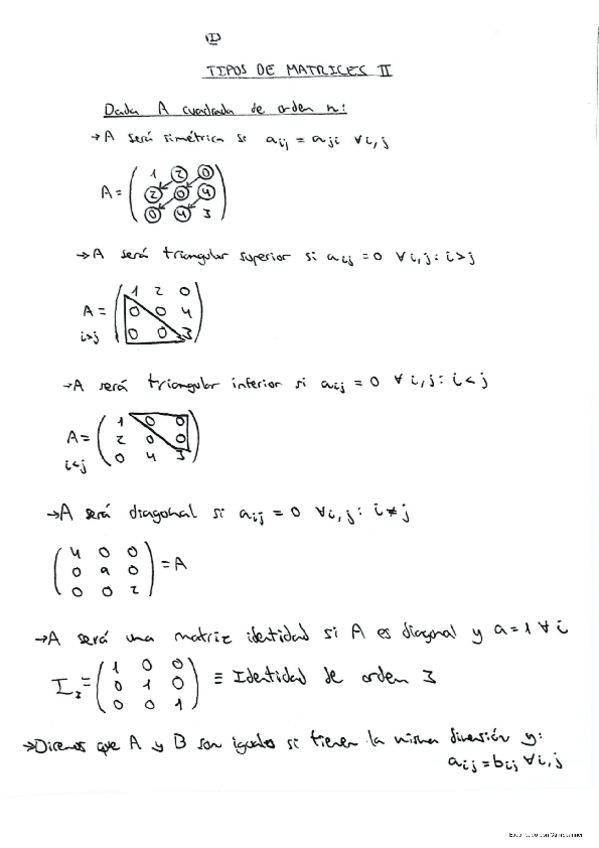 I
TIPOS DE MATRICES II
Dada A cuadrada de orden n:
→A será simétrica si aij = aji ∀i,j
1 2 0
A= 2 0 4
0 4 3
→A será triangular superior si aij =0 ∀i,j: i>j
1 2 0
A= 0 0 4
i>j 0 0 3
→A será triangular inferior si aij = 0 ∀ i,j: i<j
1 0 0
A= 2 0 0
i<j 0 4 3
→A será diagonal si aij = 0 ∀i,j: i≠j
4 0 0
0 9 0 =A
0 0 2
→A será una matriz identidad si A es diagonal y a=1 ∀ i
1 0 0
I3= 0 1 0 ≡ Identidad de orden 3
0 0 1
→Diremos que A y B son iguales si tienen la misma dimensión y:
aij=bij ∀i,j